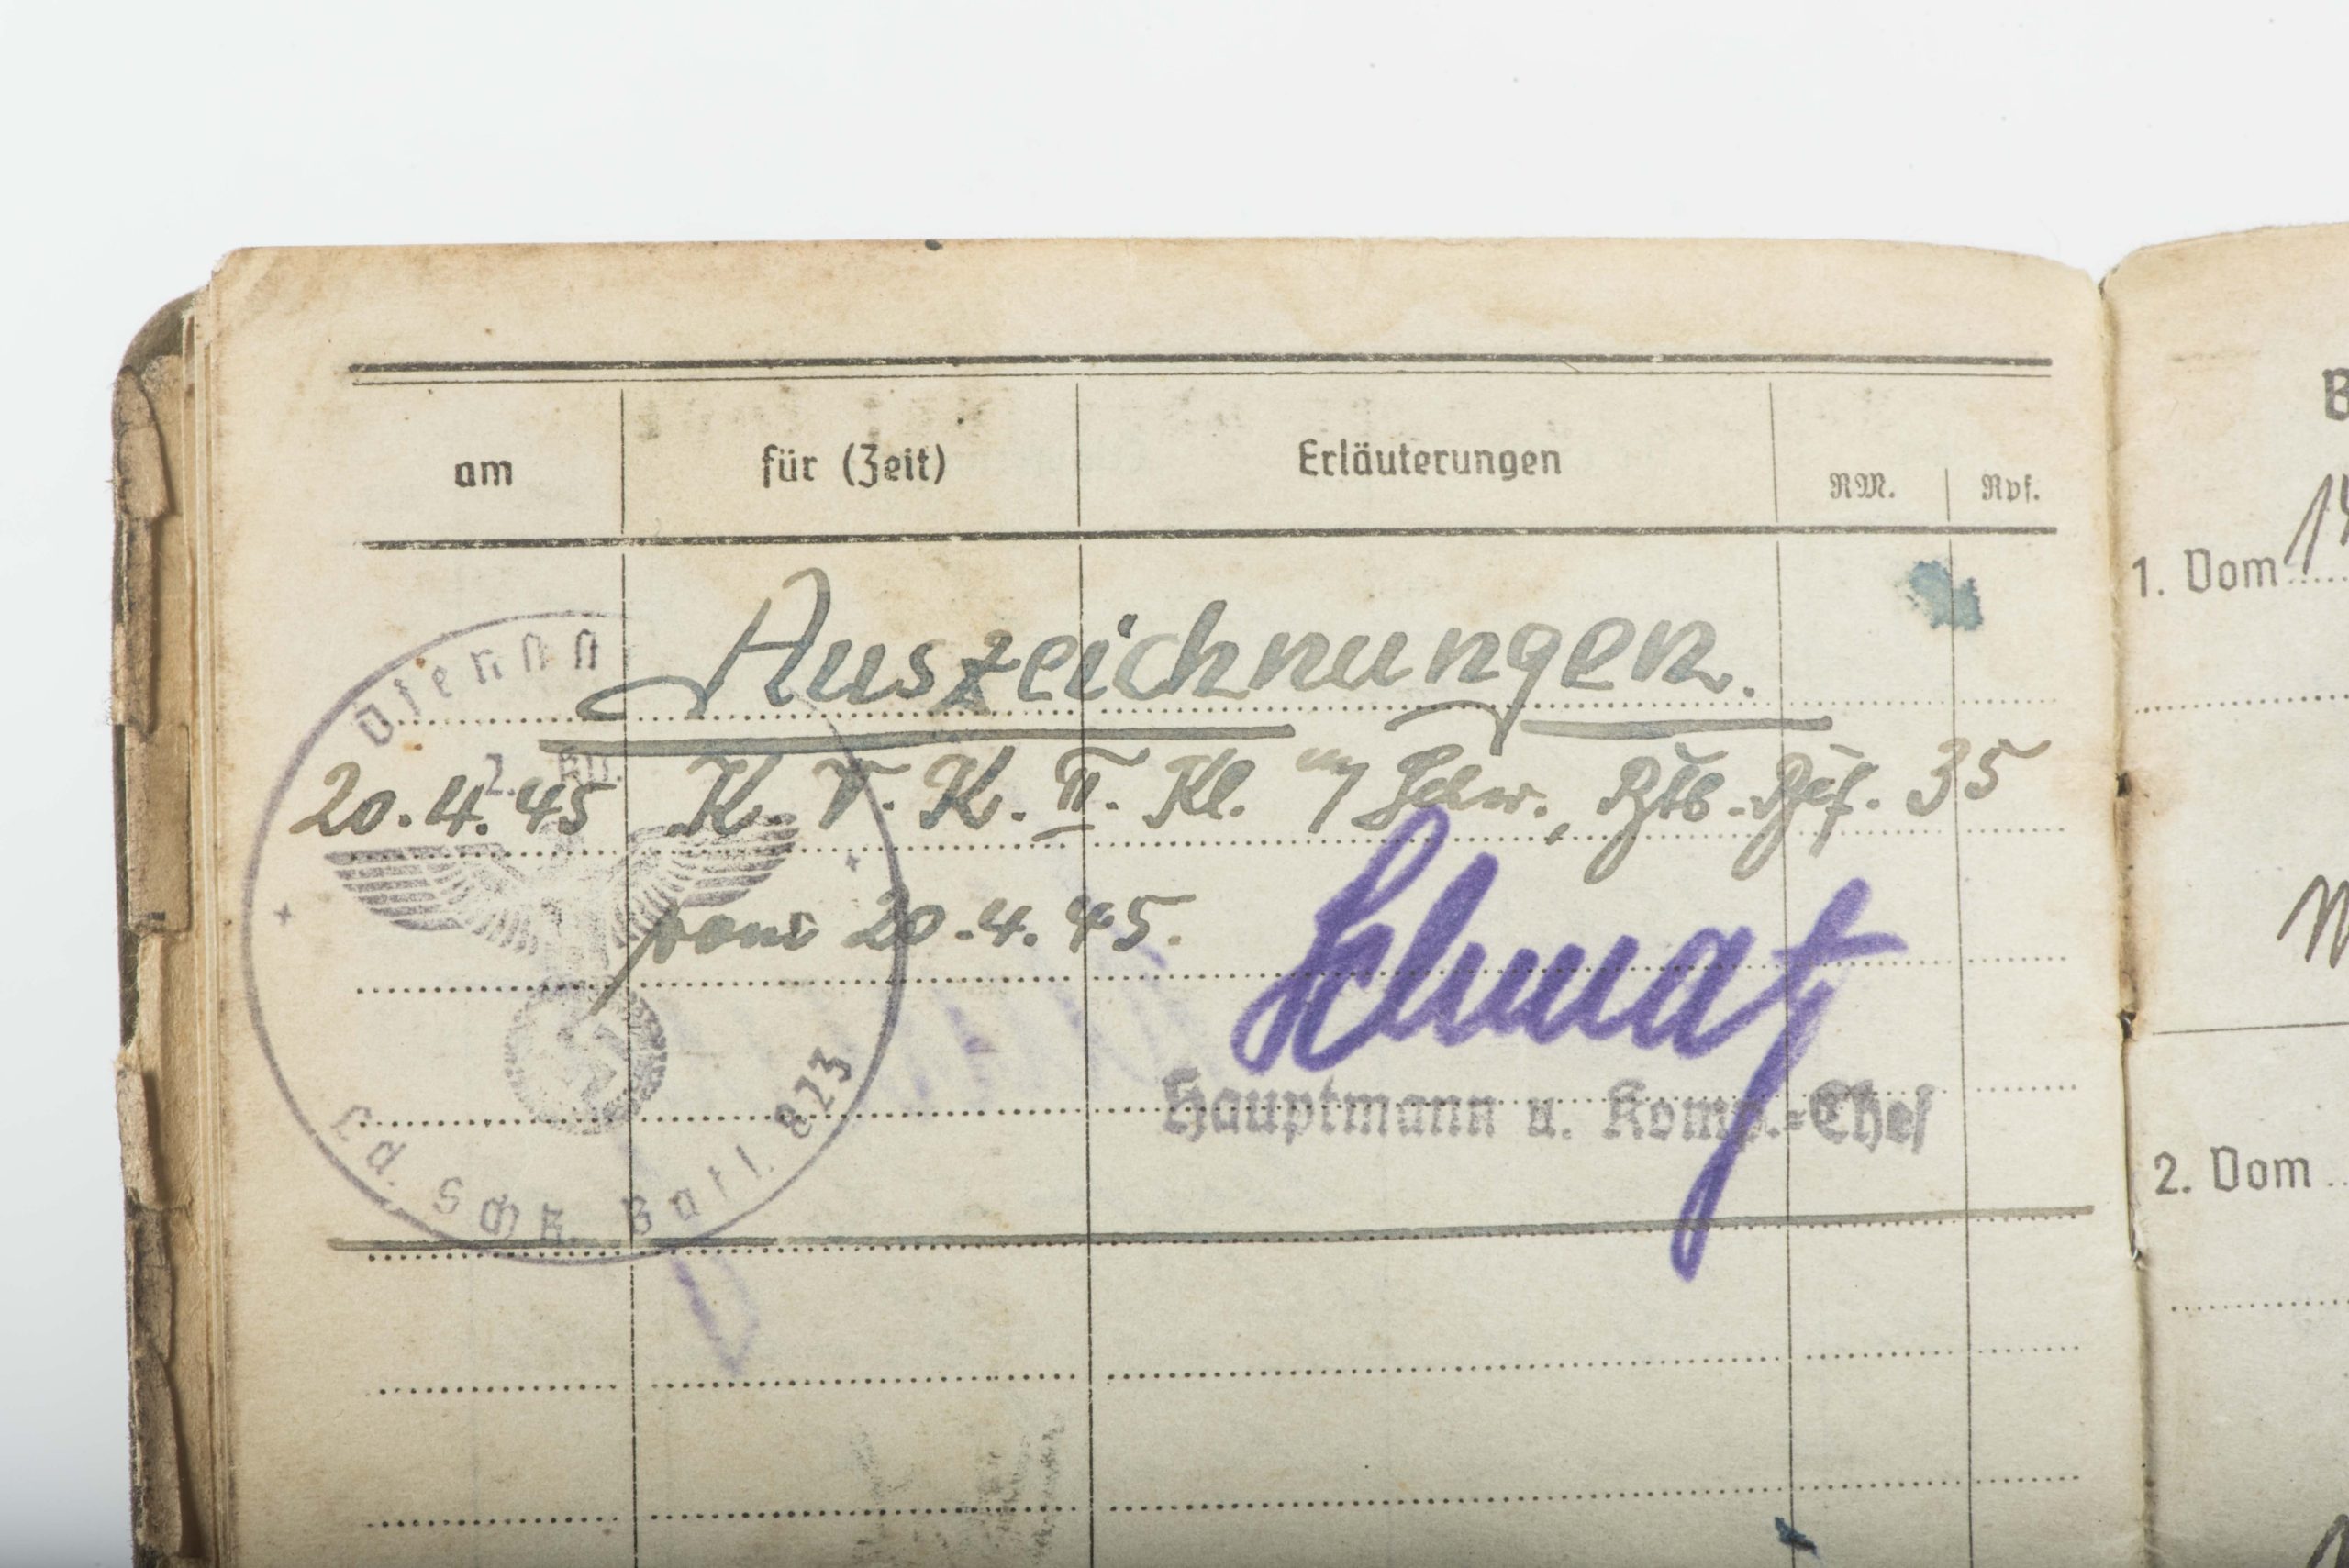 am für (Zeit) Erläuterungen RM. Rpf.
Auszeichnungen.
20.4.45 K. V. K. II. Kl. m/ Schw., Btb.-Bef. 35
vom 20.4.45.
Hauptmann u. Komp.-Chef
Dienst
2. Kp.
Ld. Sch. Batl. 823
B
1. Vom
2. Vom